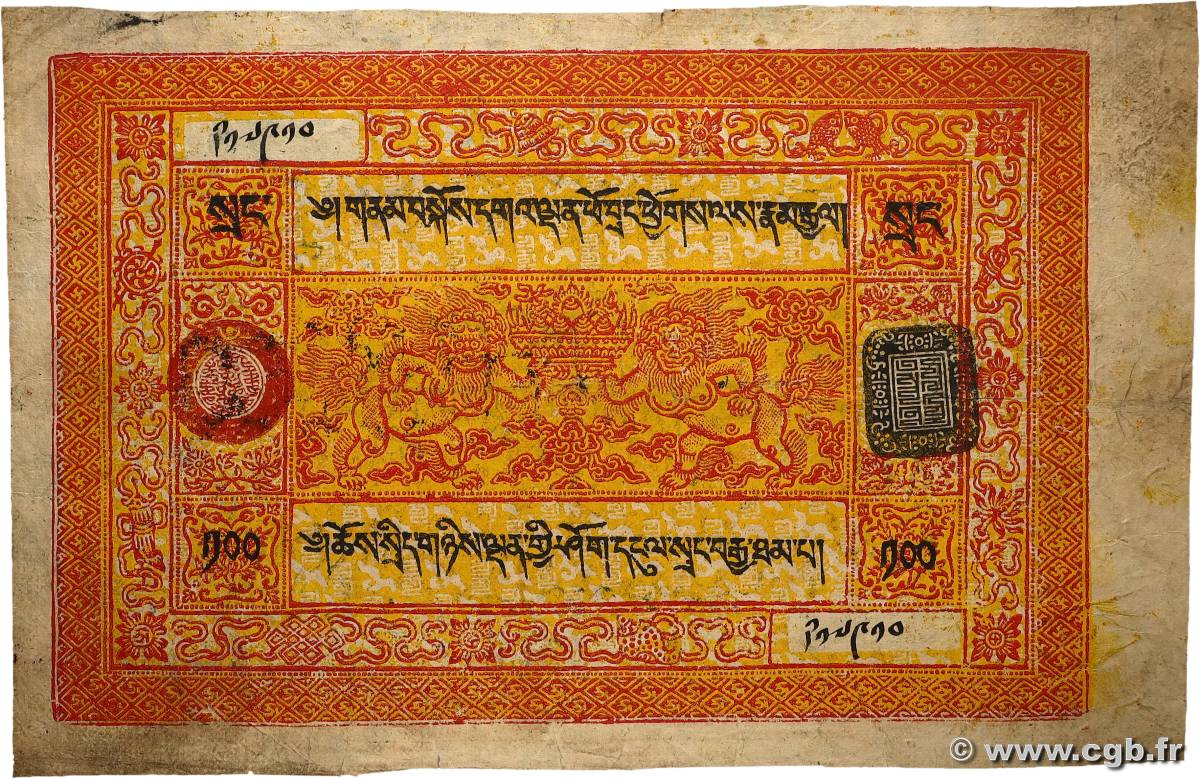 སྲང
༄། གནམ་བསྐོས་དགའ་ལྡན་ཕོ་བྲང་ཕྱོགས་ལས་རྣམ་རྒྱལ།
སྲང
༡༠༠
༄། ཆོས་སྲིད་གཉིས་ལྡན་གྱི་ཤོག་དངུལ་སྲང་བརྒྱ་ཐམ་པ།
༡༠༠
© www.cgb.fr